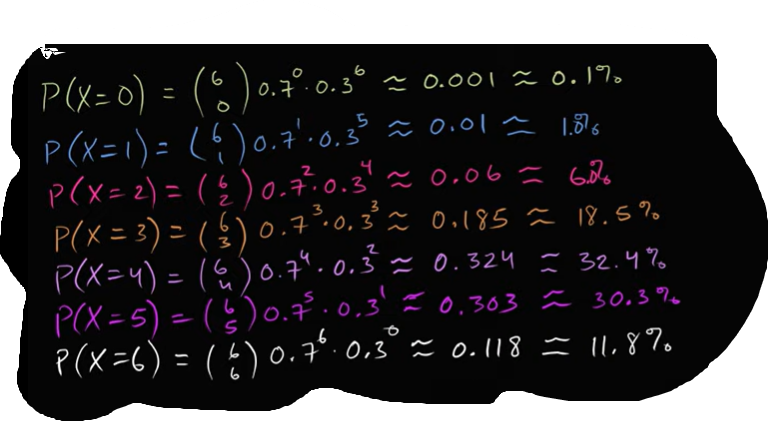 P(X=0) = (6 0) 0.7^0 · 0.3^6 ≈ 0.001 ≈ 0.1%
P(X=1) = (6 1) 0.7^1 · 0.3^5 ≈ 0.01 ≈ 1.0%
P(X=2) = (6 2) 0.7^2 · 0.3^4 ≈ 0.06 ≈ 6.0%
P(X=3) = (6 3) 0.7^3 · 0.3^3 ≈ 0.185 ≈ 18.5%
P(X=4) = (6 4) 0.7^4 · 0.3^2 ≈ 0.324 ≈ 32.4%
P(X=5) = (6 5) 0.7^5 · 0.3^1 ≈ 0.303 ≈ 30.3%
P(X=6) = (6 6) 0.7^6 · 0.3^0 ≈ 0.118 ≈ 11.8%